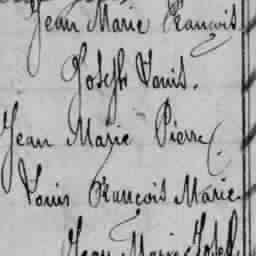 Jean Marie François
Joseph Louis.
Jean Marie Pierre
Louis François Marie
Jean Marie Joseph